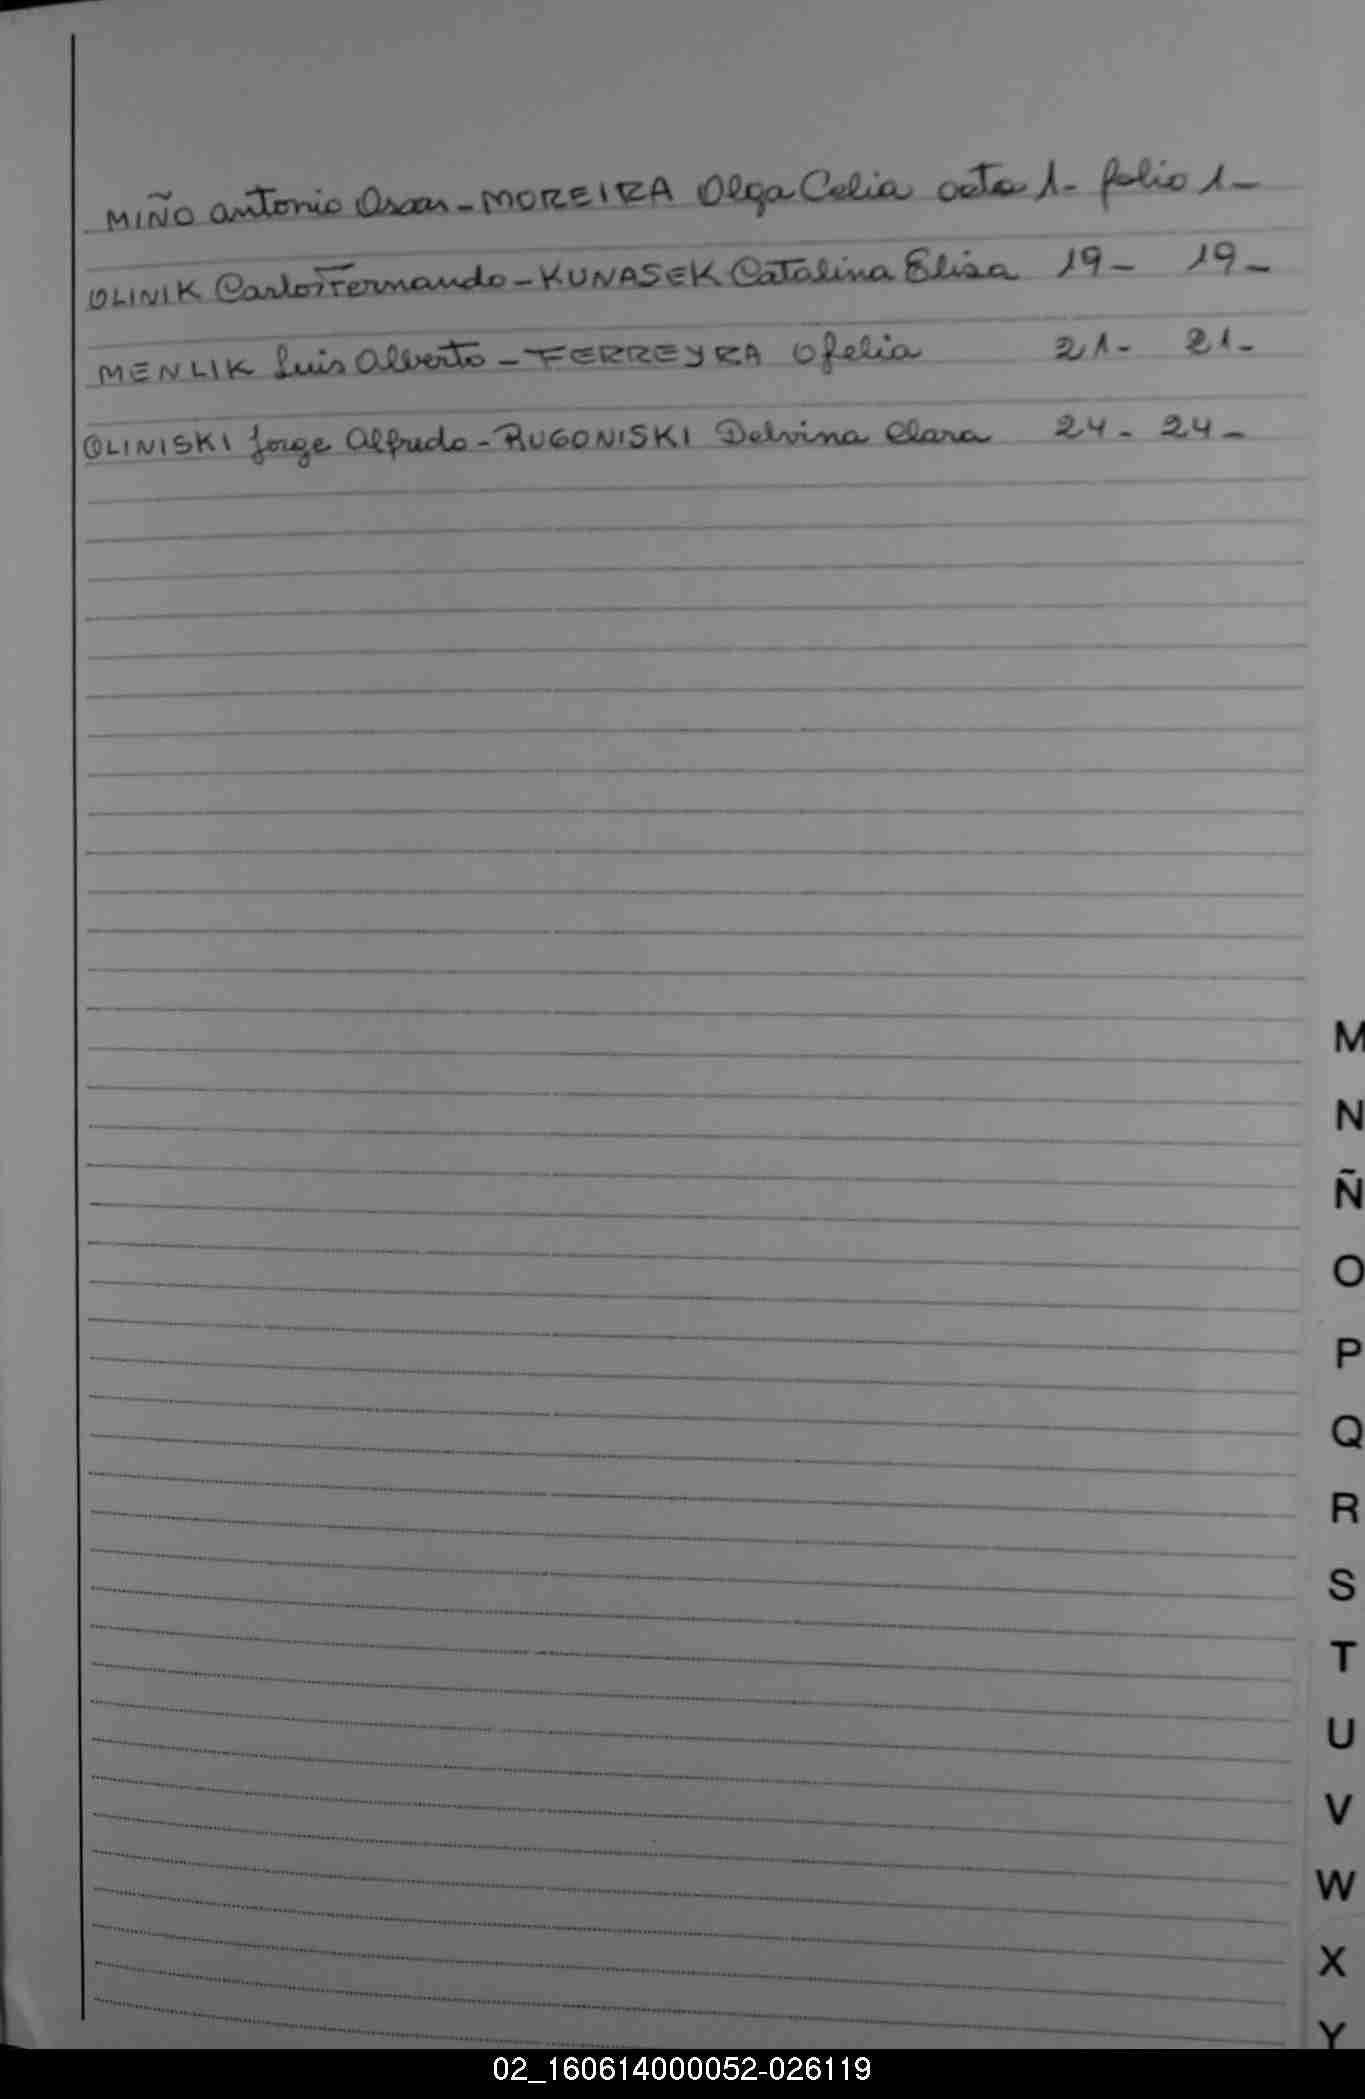 MIÑO Antonio Oscar - MOREIRA Olga Celia acta 1 - folio 1 -
OLINIK Carlos Fernando - KUNASEK Catalina Elisa 19 - 19 -
MENLIK Luis Alberto - FERREYRA Ofelia 21 - 21 -
OLINISKI Jorge Alfredo - RUGONISKI Delvina Clara 24 - 24 -
M
N
Ñ
O
P
Q
R
S
T
U
V
W
X
Y
02_160614000052-026119